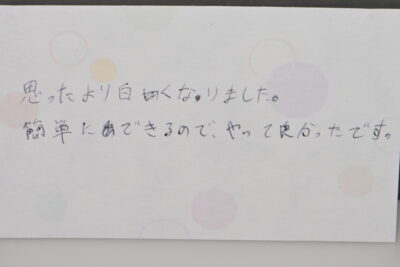 思ったより白くなりました。
簡単にできるので、やって良かったです。